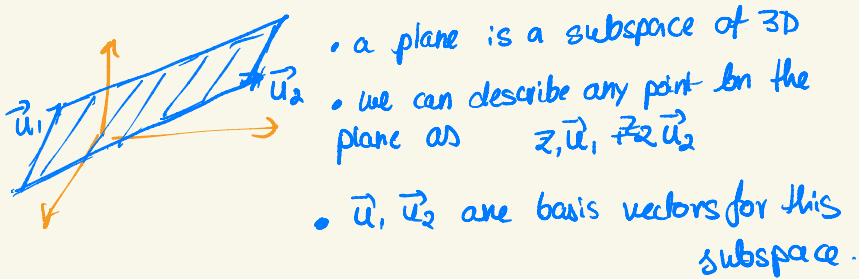 • a plane is a subspace of 3D
u⃗₁
u⃗₂
• we can describe any point on the
plane as z₁u⃗₁ + z₂u⃗₂
• u⃗₁ u⃗₂ are basis vectors for this
subspace.